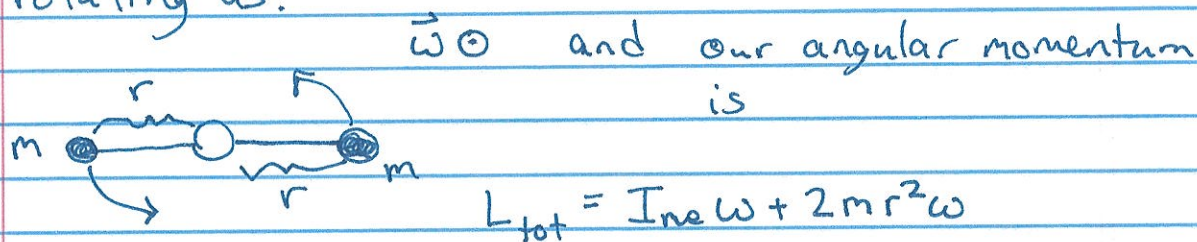 rotating ω.
ω⃗ ⊙ and our angular momentum
is
r
m
m
r
L_tot = I_me ω + 2mr²ω